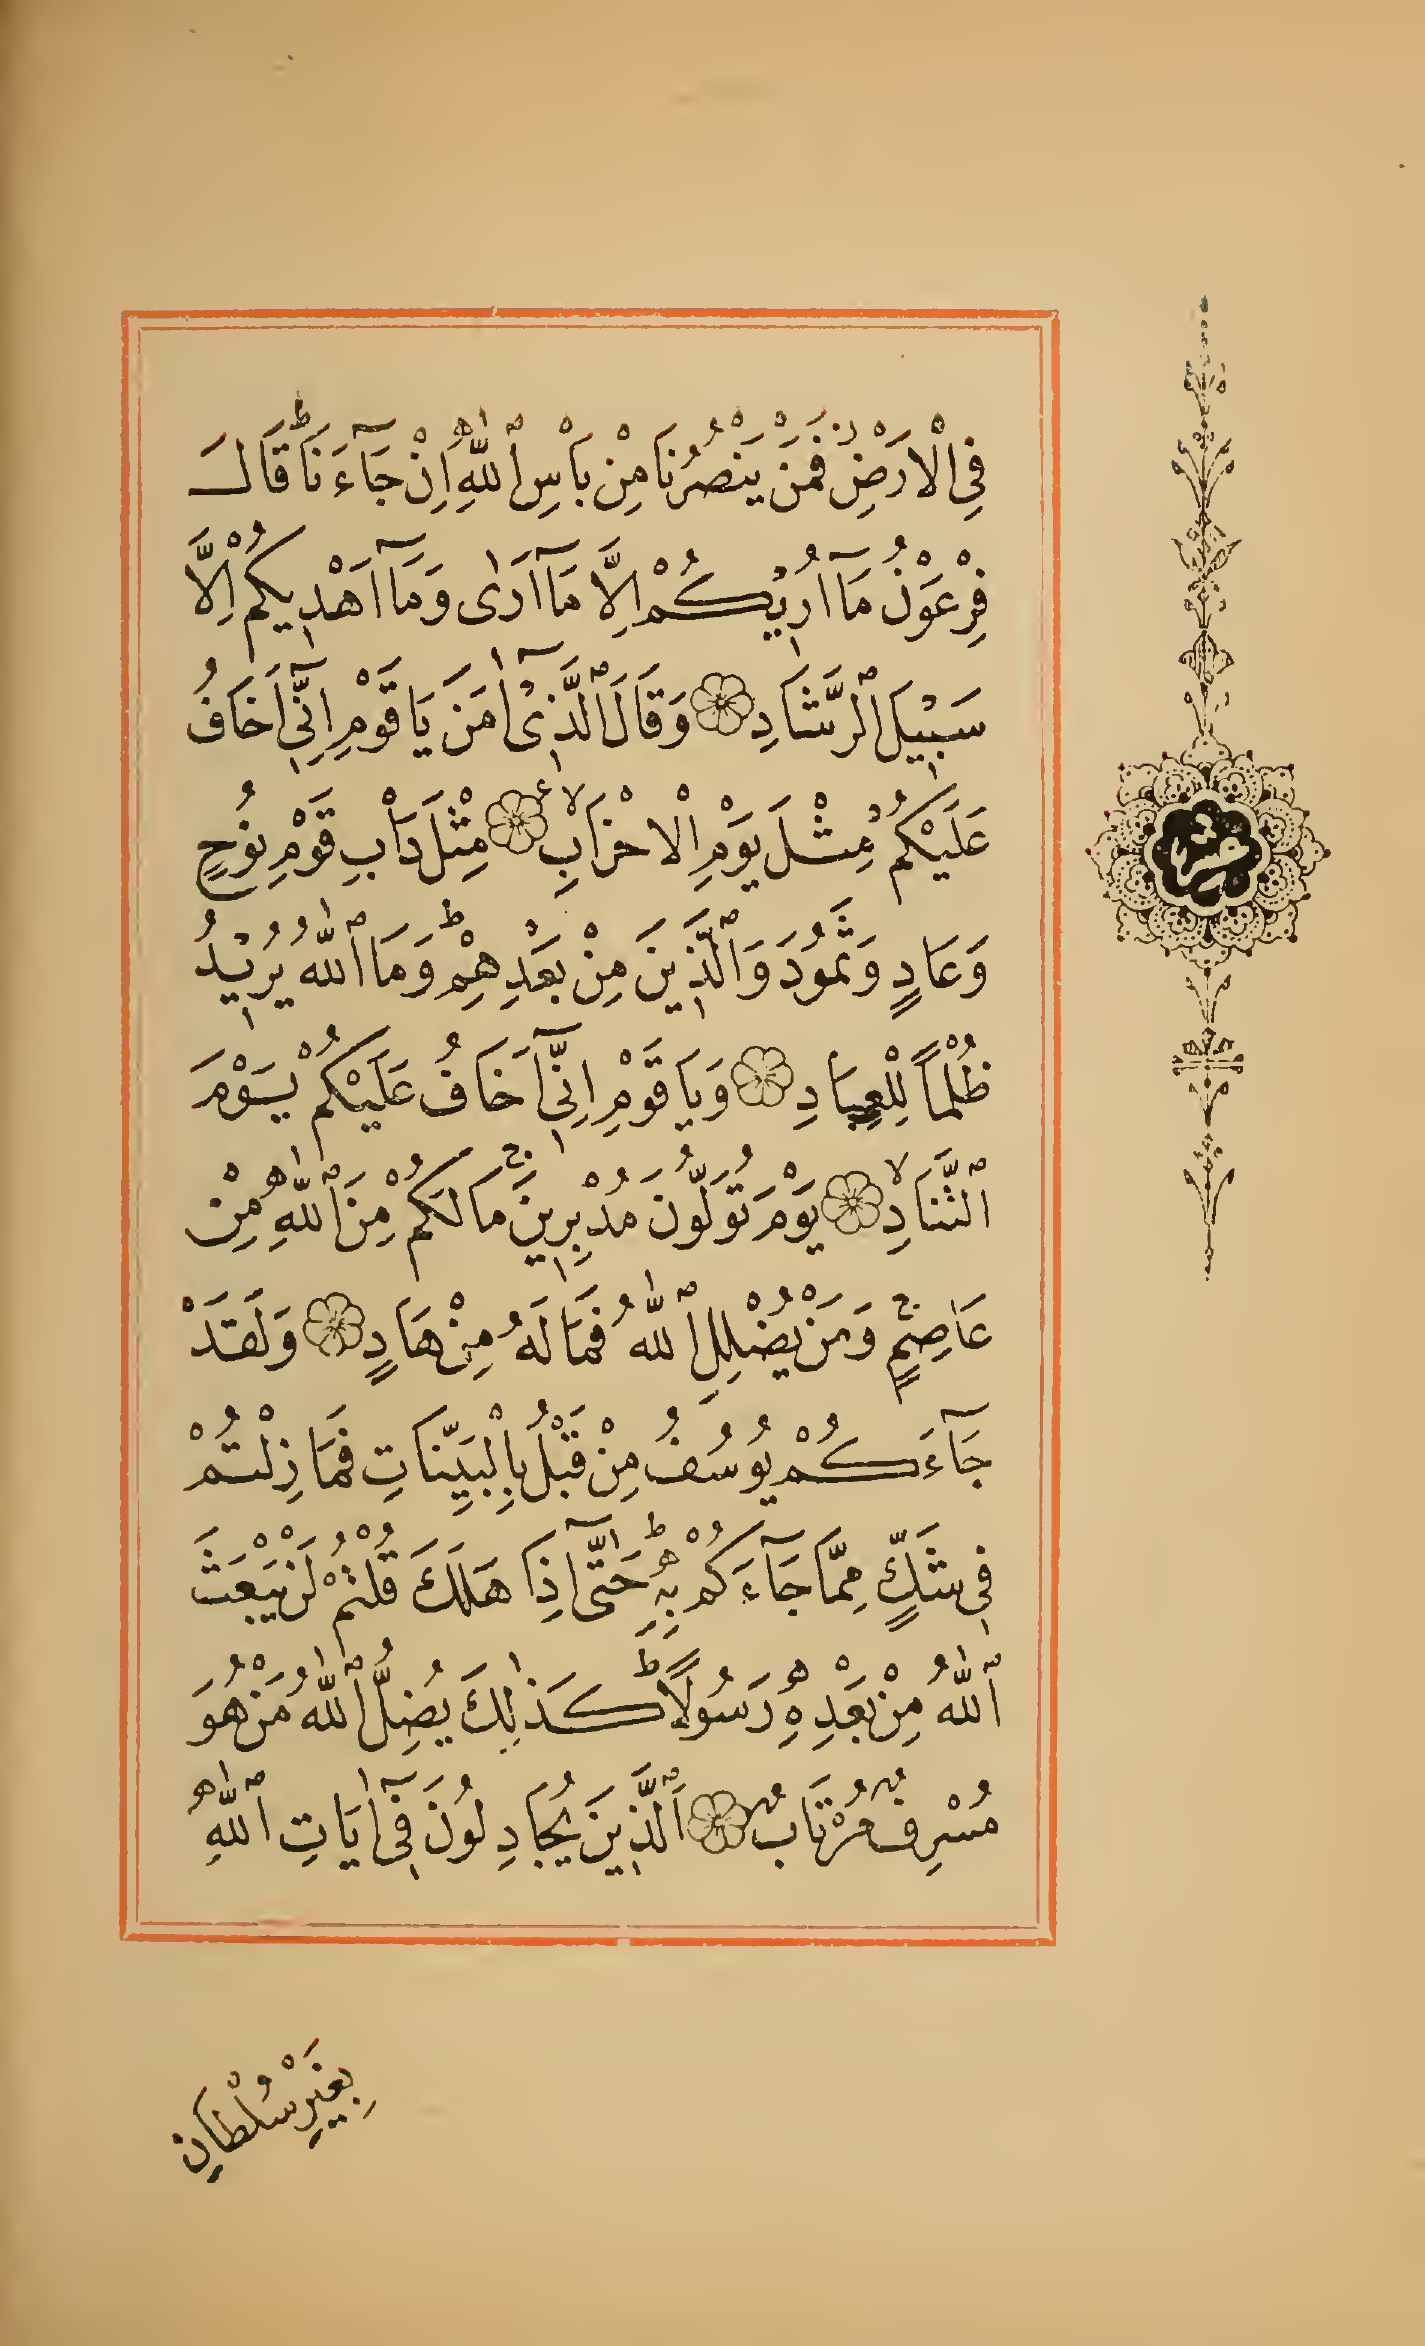 فِي الْاَرْضِ فَمَنْ يَنْصُرُنَا مِنْ بَاْسِ ٱللّٰهِ اِنْ جَآءَنَاۜ قَالَ
فِرْعَوْنُ مَٓا اُر۪يكُمْ اِلَّا مَٓا اَرٰى وَمَٓا اَهْد۪يكُمْ اِلَّا
سَب۪يلَ ٱلرَّشَادِ وَقَالَ ٱلَّذ۪ٓي اٰمَنَ يَا قَوْمِ اِنّ۪ٓي اَخَافُ
عَلَيْكُمْ مِثْلَ يَوْمِ الْاَحْزَابِۙ مِثْلَ دَاْبِ قَوْمِ نُوحٍ
وَعَادٍ وَثَمُودَ وَٱلَّذ۪ينَ مِنْ بَعْدِهِمْۜ وَمَا ٱللّٰهُ يُر۪يدُ
ظُلْماً لِلْعِبَادِ وَيَا قَوْمِ اِنّ۪ٓي اَخَافُ عَلَيْكُمْ يَوْمَ
ٱلتَّنَادِۙ يَوْمَ تُوَلُّونَ مُدْبِر۪ينَۚ مَا لَكُمْ مِنَ ٱللّٰهِ مِنْ
عَاصِمٍۚ وَمَنْ يُضْلِلِ ٱللّٰهُ فَمَا لَهُ مِنْ هَادٍ وَلَقَدْ
جَآءَكُمْ يُوسُفُ مِنْ قَبْلُ بِالْبَيِّنَاتِ فَمَا زِلْتُمْ
ف۪ي شَكٍّ مِمَّا جَآءَكُمْ بِه۪ۜ حَتّٰٓى اِذَا هَلَكَ قُلْتُمْ لَنْ يَبْعَثَ
ٱللّٰهُ مِنْ بَعْدِه۪ رَسُولاًۜ كَذٰلِكَ يُضِلُّ ٱللّٰهُ مَنْ هُوَ
مُسْرِفٌ مُرْتَابٌ اَلَّذ۪ينَ يُجَادِلُونَ ف۪ٓي اٰيَاتِ ٱللّٰهِ
بِغَيْرِ سُلْطَانٍ